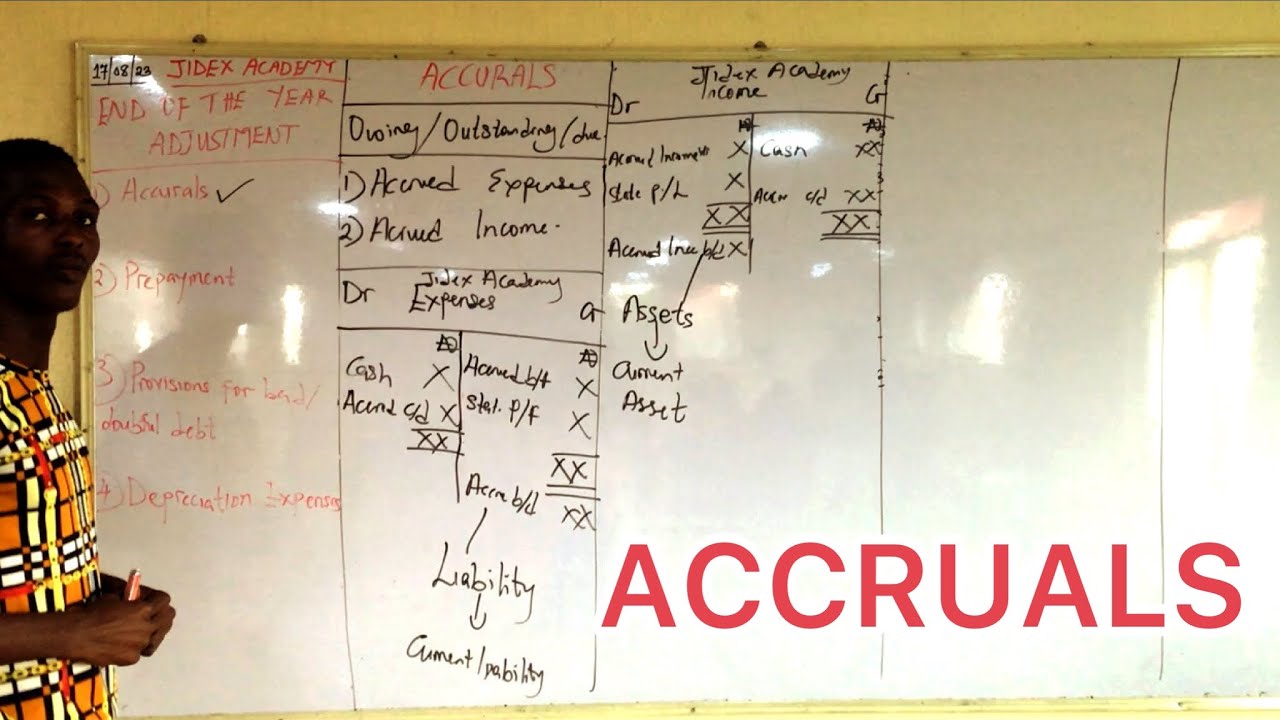 17/08/23 JIDEX ACADEMY
END OF THE YEAR
ADJUSTMENT
1) Accurals ✓
2) Prepayment
3) Provisions for bad/
doubful debt
4) Depreciation Expenses
ACCURALS
Owing/Outstanding/due
1) Accrued Expenses
2) Accrued Income.
Jidex Academy
Dr Expenses Cr
Cash X
Accrd c/d X
XX
Accrued b/f X
Stat. P/F X
XX
Accre b/d XX
Liability
Current liability
Jidex Academy
Income
Dr Cr
Accrued Income b/f X
State P/L X
XX
Accrued Inco b/d X
Cash XX
Accr c/d XX
XX
Assets
Current
Asset
ACCRUALS